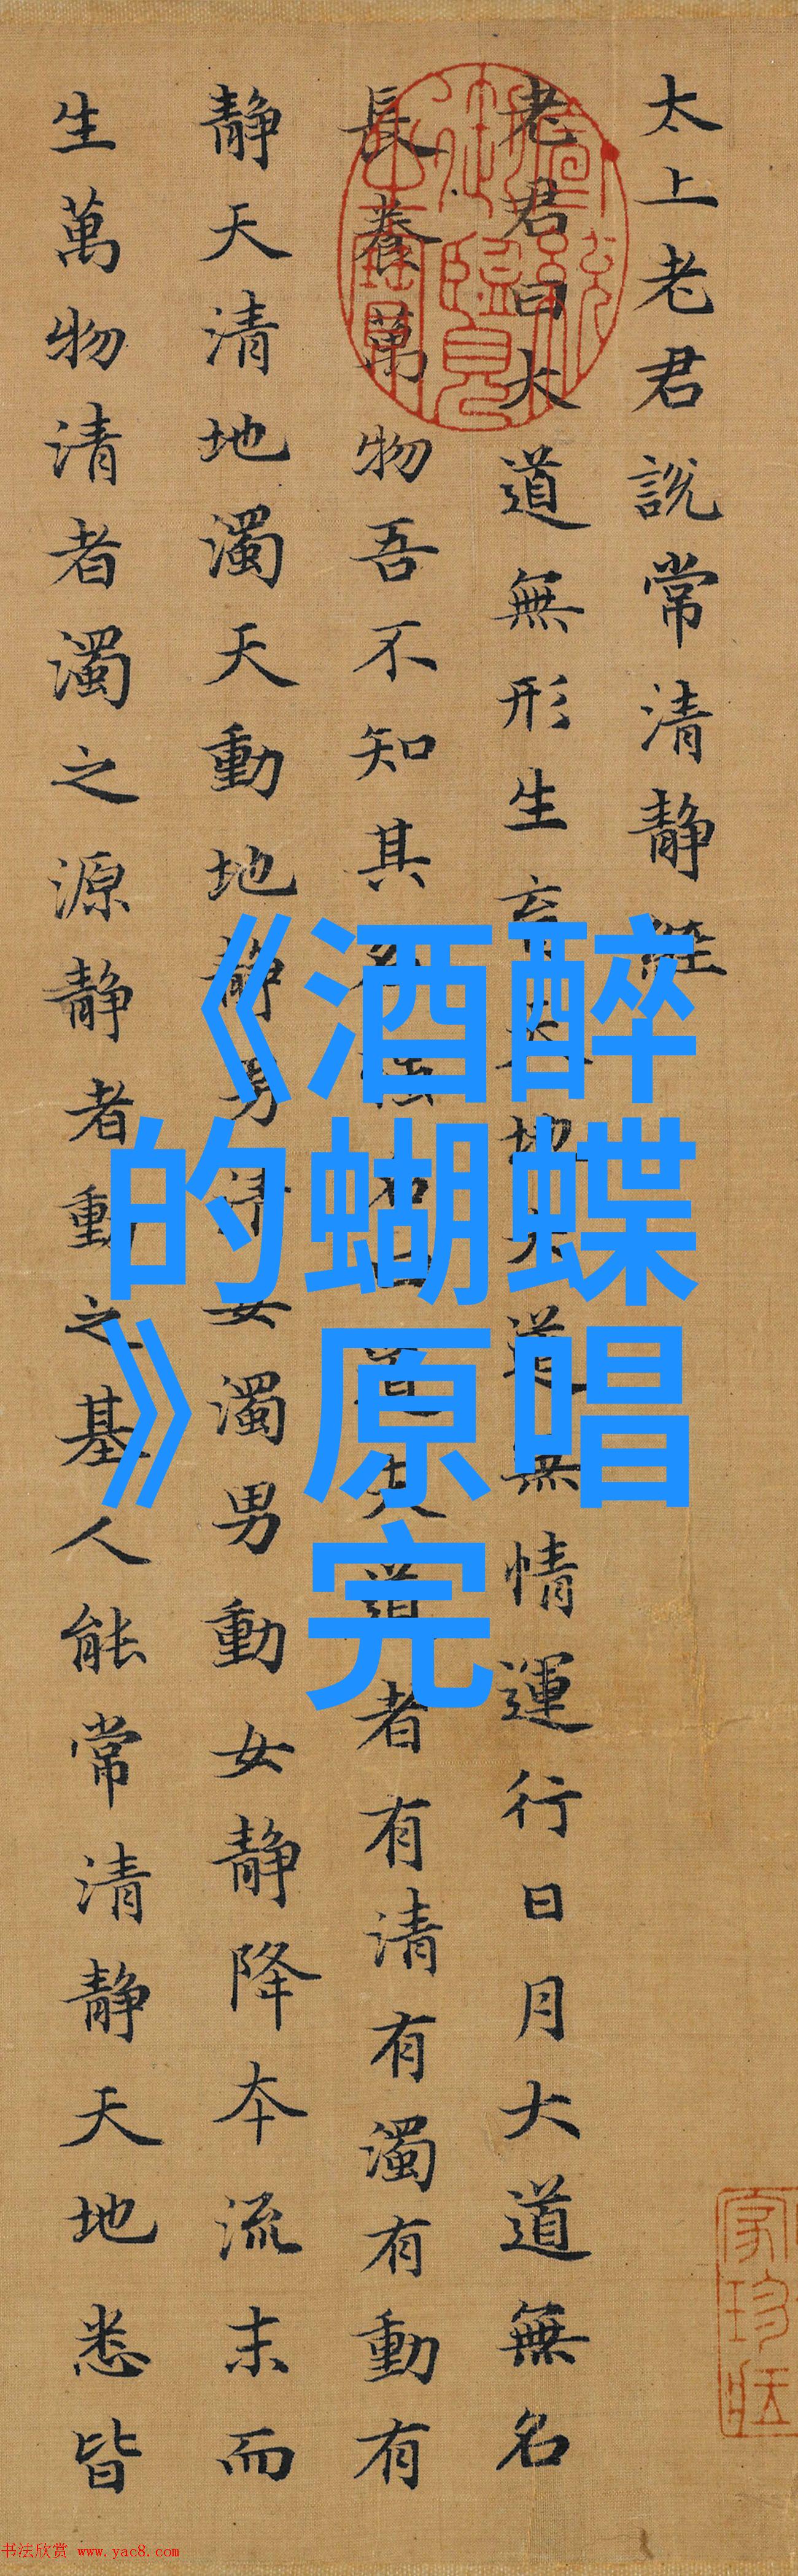 太上老君說常清靜經
老君曰大道無形生育天地大道無情運行日月大道無名
長養萬物吾不知其名強名曰道夫道者有清有濁有動有
靜天清地濁天動地靜男清女濁男動女靜降本流末而
生萬物清者濁之源靜者動之基人能常清靜天地悉皆
宣統
御覽
之寶
《酒醉
的蝴蝶
》原唱
完
书法欣赏 www.yac8.com